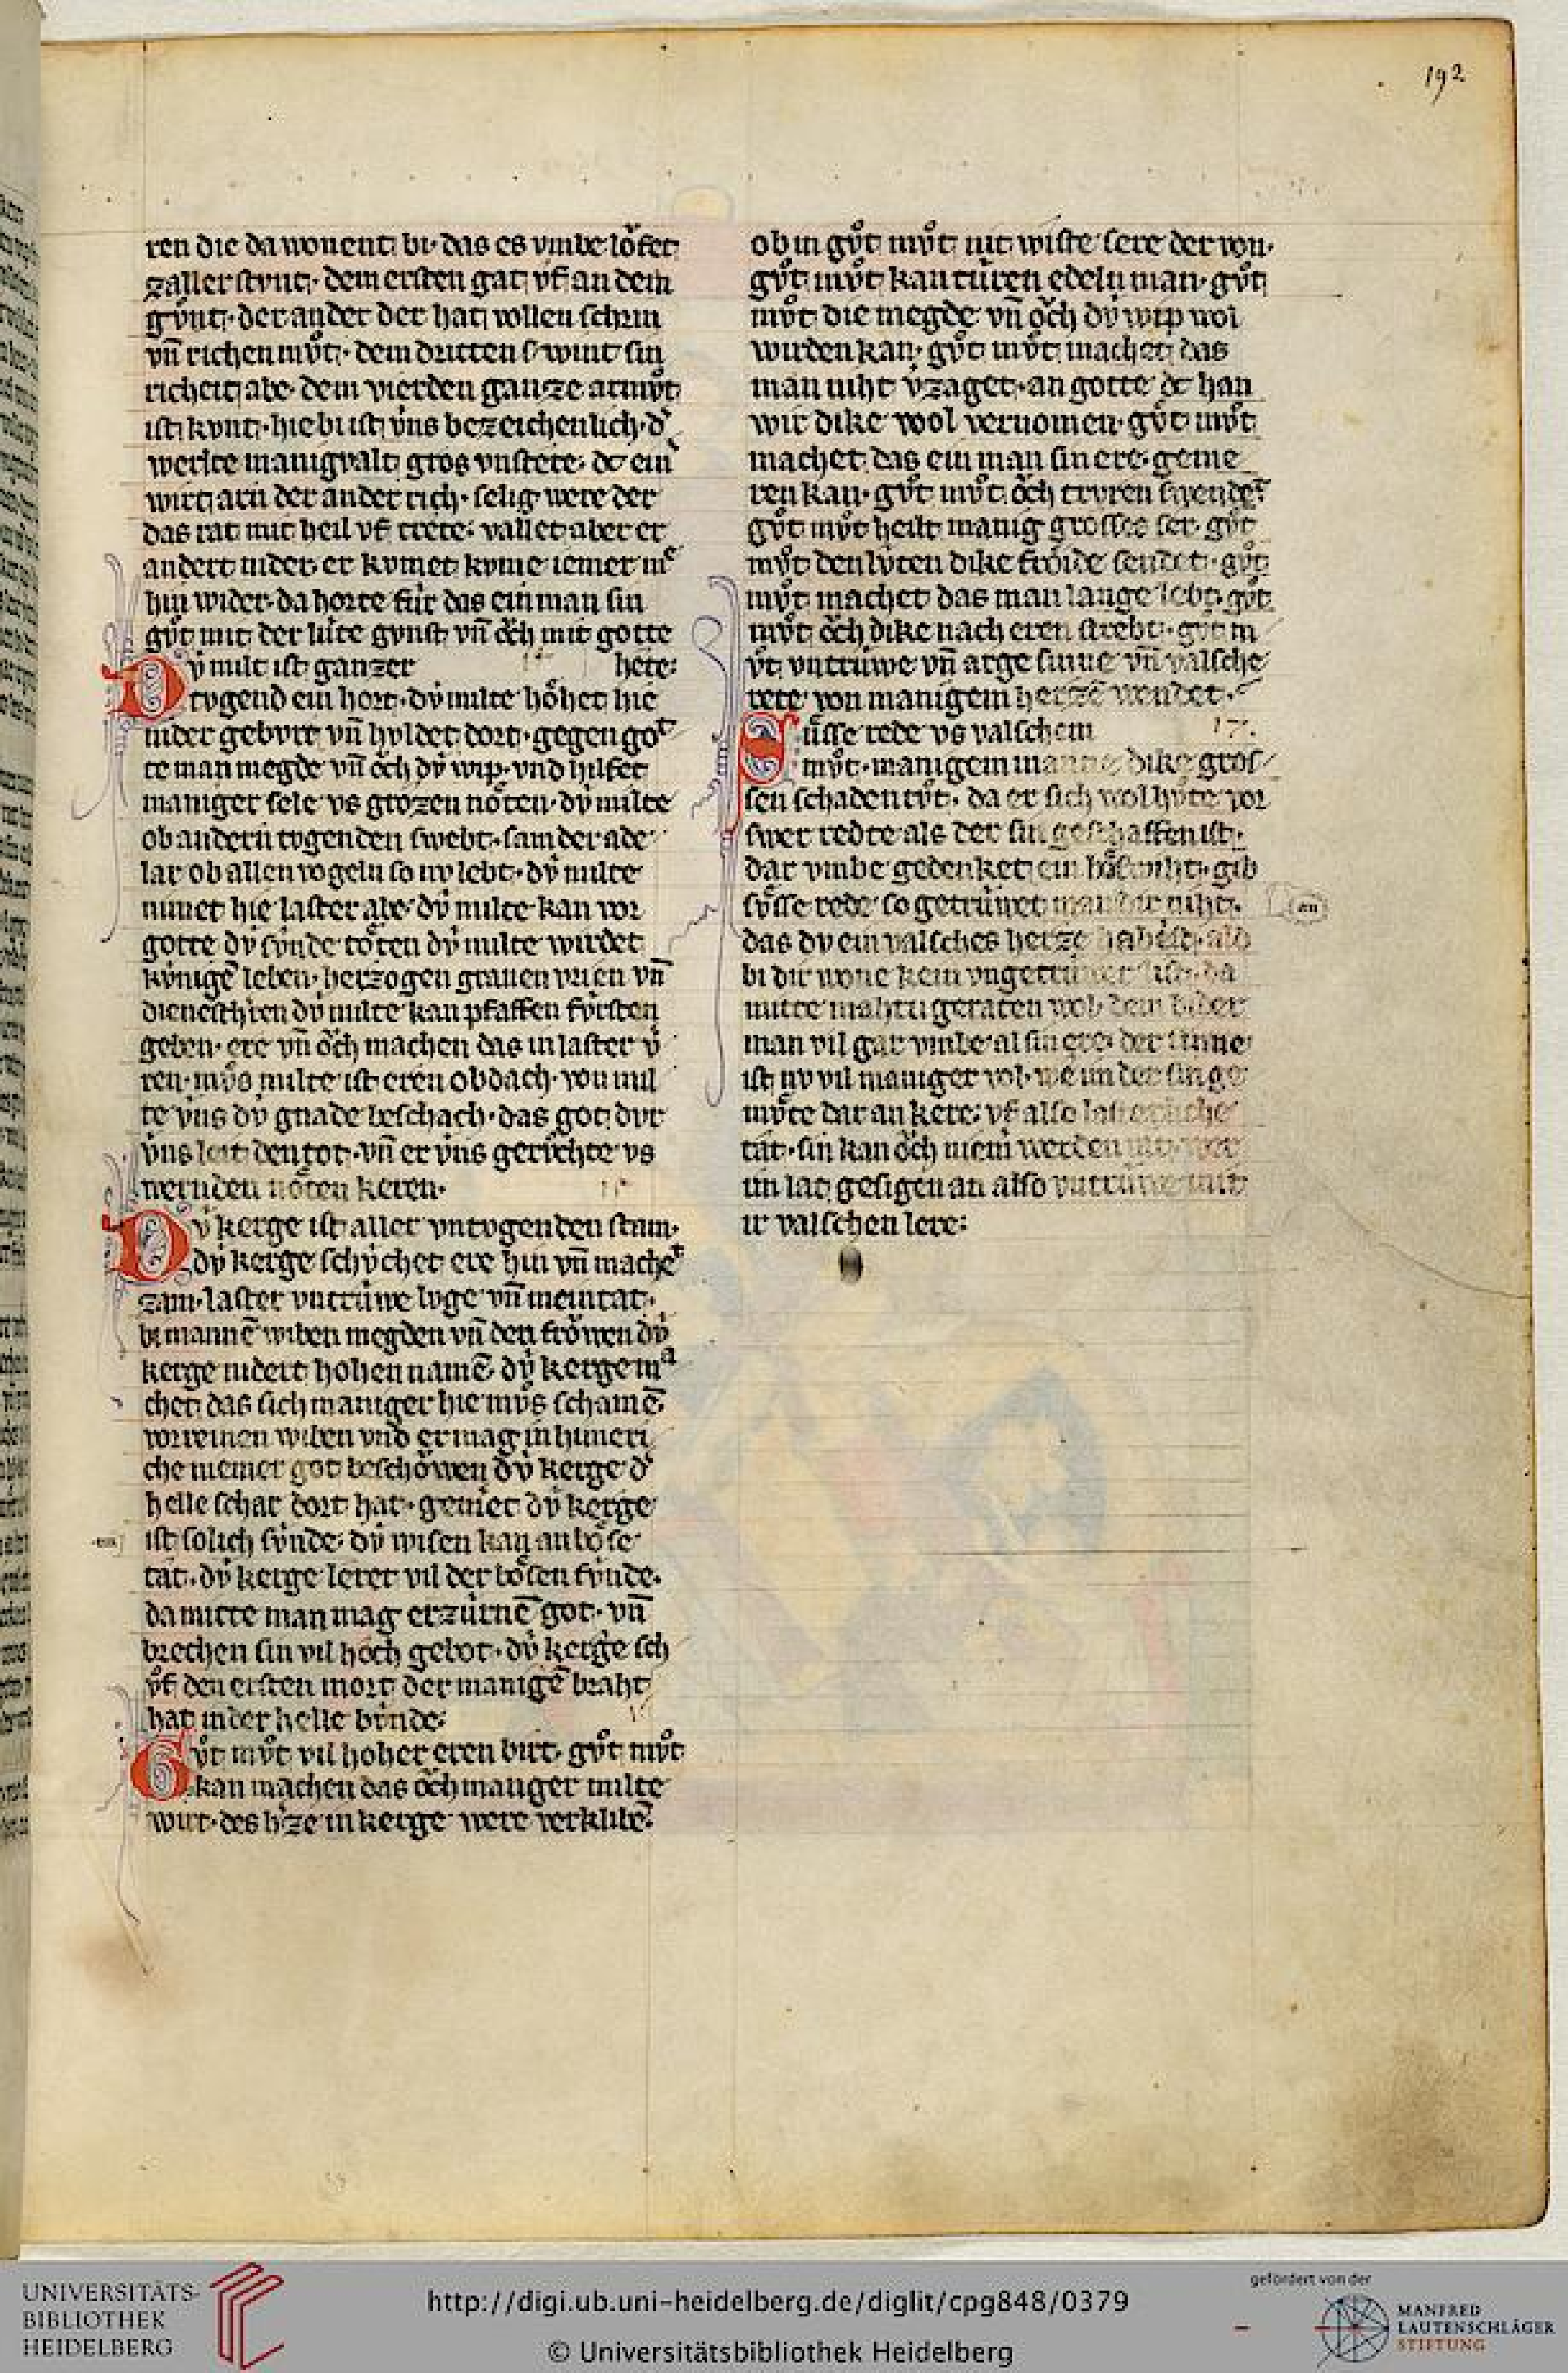 192
ren die da wonent bi· das es vmbe lo̊fet
zaller stvnt· dem ersten gat vf an dem
gv̊nt· der ander der hat vollen schrin
vn̄ richen mv̊t· dem dritten swint sin
richeit abe· dem vierden ganze armv̊t
ist kvnt· hie bi ist v́ns bezeichenlich· d͛
werlte manigvalt gros vnstete· dc ein
wirt arn der ander rich· selig were der
das rat mit heil vf trete· vallet aber er
andert nider· er kvmet kvme iemer mͤ
hin wider· da horte fúr das ein man sin
gv̊t mit der lúte gvnst vn̄ o̊ch mit gotte
hete:
Dv́ milt ist ganzer
tvgend ein hort· dv́ milte ho̊het hie
nider gebvrt vn̄ hvldet dort· gegen got
te man megde vn̄ o̊ch dv́ wip· vnd hilfet
maniger sele vs grozen no̊ten· dv́ milte
ob andern tvgenden swebt· sam der ade
lar ob allen vogeln so nv lebt· dv́ milte
nimet hie laster abe· dv́ milte kan vor
gotte dv́ sv́nde to̊ten dv́ milte wirdet
kv́nige͂ leben· herzogen grauen vrien vn̄
dienesthren dv́ milte kan pfaffen fv́rsten
geben· ere vn̄ o̊ch machen das in laster v͛
ren· mv̊s milte ist eren obdach· von mil
te v́ns dv́ gnade beschach· das got dvr
v́ns leit den tot· vn̄ er v́ns gerv̊chte vs
wernden no̊ten keren·
Dv́ kerge ist aller vntvgenden stam·
dv́ kerge schv́chet ere hin vn̄ machet
zam· laster vntrúwe lvge vn̄ meintat·
bi manne͂ wiben megden vn̄ den fro̊wen dv́
kerge nidert hohen name͂ dv́ kerge ma
chet das sich maniger hie mv̊s schame͂
vor reinen wiben vnd er mag in himeri
che niemer got bescho̊wen dv́ kerge d͛
helle schar dort hat· gemeret dv́ kerge
ist solich sv́nde· dv́ wisen kan an bo̊se
tat· dv́ kerge leret vil der bo̊sen fv́nde·
da mitte man mag erzúrne͂ got· vn̄
brechen sin vil hoch gebot· dv́ kerge sch
v̊f den ersten mort der manige͂ braht
hat in der helle bv́nde:
Gv̊t mv̊t vil hoher eren birt· gv̊t mv̊t
kan machen das o̊ch maniger milte
wirt· des h͛ze in kerge were verklibe͂·
ob in gv̊t mv̊t nit wiste sere der von·
gv̊t mv̊t kan túren edeln man· gv̊t
mv̊t die megde vn̄ o̊ch dv́ wip wol
wirden kan· gv̊t mv̊t machet das
man niht v͛zaget· an gotte dc han
wir dike wol vernomen· gv̊t mv̊t
machet das ein man sin ere· geme
ren kan· gv̊t mv̊t o̊ch trvren swendet
gv̊t mv̊t heilt manig grosses ser· gv̊t
mv̊t den lv́ten dike fro̊ide sendet· gv̊t
mv̊t machet das man lange lebt· gv̊t
mv̊t o̊ch dike nach eren strebt· gv̊t m
v̊t vntrúwe vn̄ arge sinne vn̄ valsche
rete von manigem herze͂ wendet·
Sússe rede vs valschem
17.
mv̊t· manigem manne dike gros
sen schaden tv̊t· da er sich wol hv̊te vor
swer redte als der sin geschaffen ist·
dar vmbe gedenket ein bo̊swiht· gib
sv̊sse rede so getrúwet man dir niht·
an
das dv ein valsches herze habest· ald
bi dir wone kein vngetrúwer list· da
mitte maht tu geraten wol· dem bider
man vil gar vmbe al sin ere· der sinne
ist nv vil maniger vol· we im der sin ge
mv̊te dar an kere· vf also lasterliche
tat· sin kan o̊ch niem͛ werden rat· wer
im lat gesigen an also vntrúwe mit
ir valschen lere:
UNIVERSITÄTS-
BIBLIOTHEK
HEIDELBERG
http://digi.ub.uni-heidelberg.de/diglit/cpg848/0379
© Universitätsbibliothek Heidelberg
gefördert von der
MANFRED
LAUTENSCHLÄGER
STIFTUNG